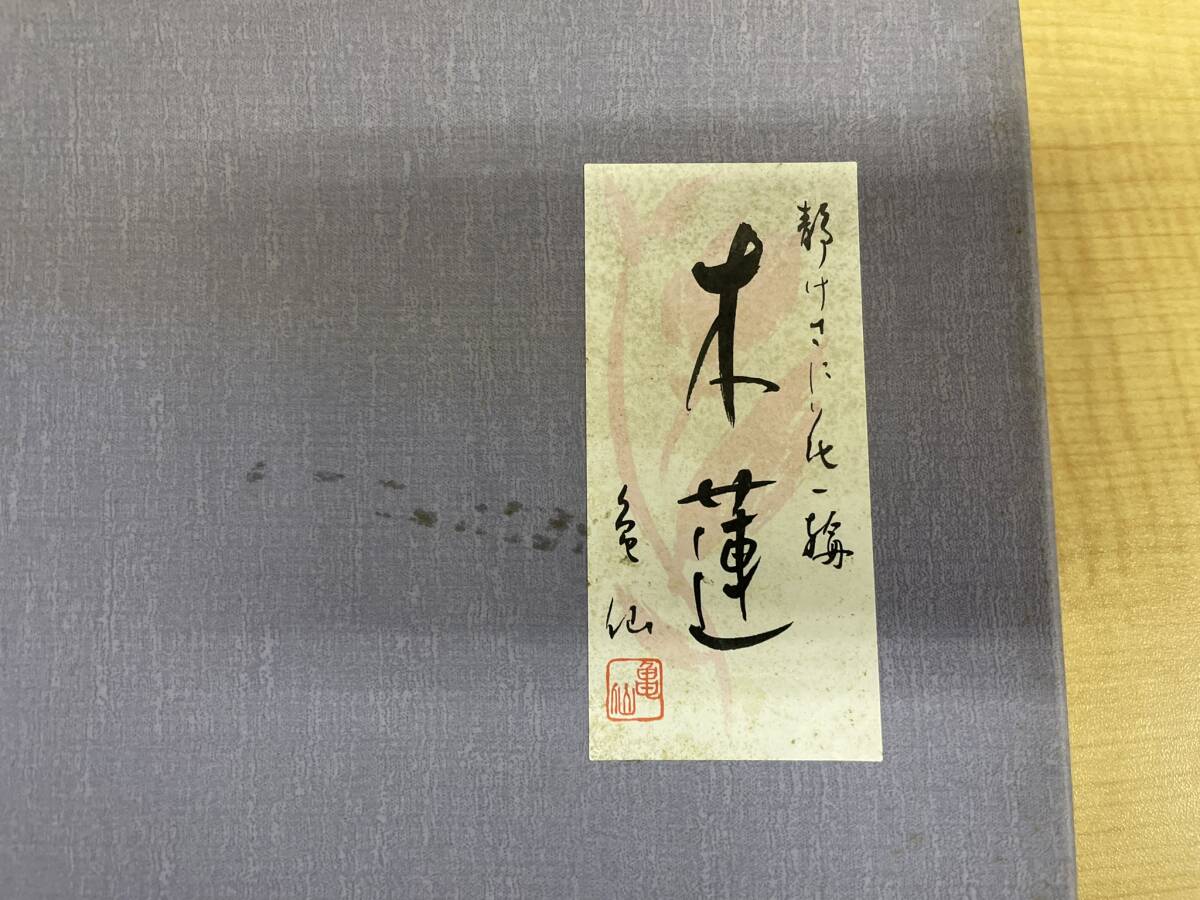 静けさに化一輪
木蓮
亀仙
亀仙